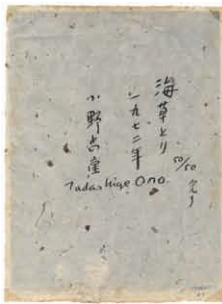 海草とり
50/50
一九七二年
小野忠重
Tadashige Ono